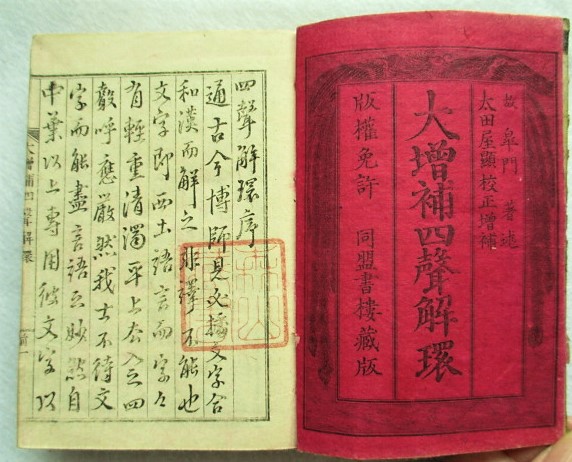 故 皐門 著述
太田屋顯校正增補
大增補四聲解環
版權免許 同盟書樓藏版
四聲解環序
通古今博師見必據文字合
和漢而解之非譯不能也
文字即西土語言而字々
有輕重清濁平上去入之四
聲呼應嚴然我士不待文
字而能盡言語之妙然自
中葉以上專用彼文字以
大增補四聲解環